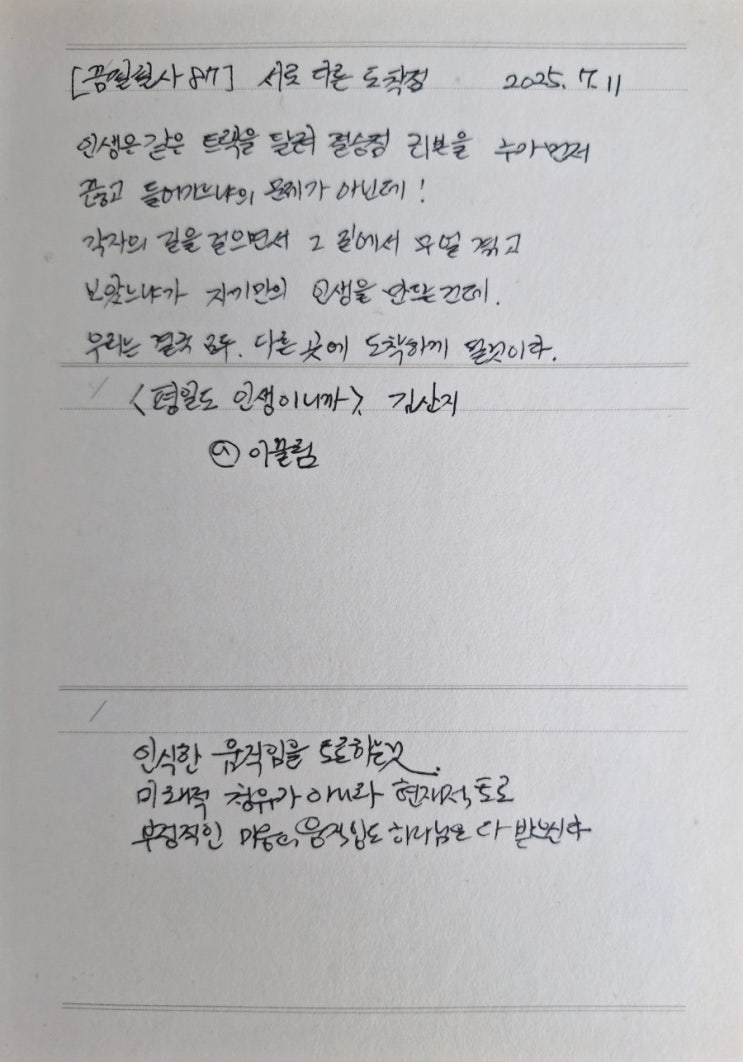 [꿈별필사 87] 서로 다른 도착점 2025. 7. 11
인생은 같은 트랙을 달려 결승점 리본을 누가 먼저
끊고 들어가느냐의 문제가 아닌데!
각자의 길을 걸으면서 그 길에서 무얼 겪고
보았느냐가 자기만의 인생을 만드는건데.
우리는 결국 모두. 다른 곳에 도착하게 될것이다.
<평일도 인생이니까>, 김신지
이끌림
인식한 움직임을 토로하는것.
미래적 청유가 아니라 현재적 토로
부정적인 마음의 움직임도 하나님은 다 받으신다